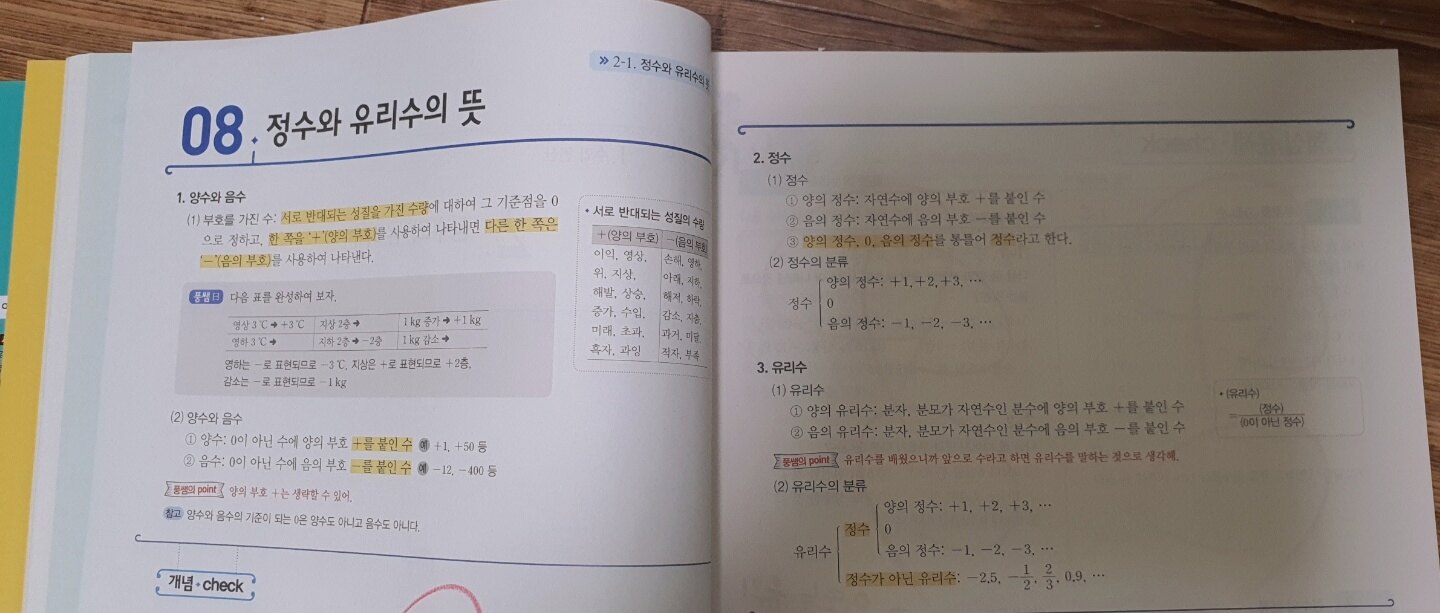 » 2-1. 정수와 유리수의 뜻
08 정수와 유리수의 뜻
1. 양수와 음수
(1) 부호를 가진 수: 서로 반대되는 성질을 가진 수량에 대하여 그 기준점을 0
으로 정하고, 한 쪽을 '+'(양의 부호)를 사용하여 나타내면 다른 한 쪽은
'-'(음의 부호)를 사용하여 나타낸다.
풍쌤日 다음 표를 완성하여 보자.
영상 3 ℃ ➔ +3 ℃ 지상 2층 ➔ 1 kg 증가 ➔ +1 kg
영하 3 ℃ ➔ 지하 2층 ➔ -2층 1 kg 감소 ➔
영하는 -로 표현되므로 -3 ℃, 지상은 +로 표현되므로 +2층,
감소는 -로 표현되므로 -1 kg
• 서로 반대되는 성질의 수량
+(양의 부호) -(음의 부호)
이익, 영상, 손해, 영하,
위, 지상, 아래, 지하,
해발, 상승, 해저, 하락,
증가, 수입, 감소, 지출,
미래, 초과, 과거, 미달,
흑자, 과잉 적자, 부족
(2) 양수와 음수
① 양수: 0이 아닌 수에 양의 부호 +를 붙인 수 예 +1, +50 등
② 음수: 0이 아닌 수에 음의 부호 -를 붙인 수 예 -12, -400 등
풍쌤의 point 양의 부호 +는 생략할 수 있어.
참고 양수와 음수의 기준이 되는 0은 양수도 아니고 음수도 아니다.
개념 check
2. 정수
(1) 정수
① 양의 정수: 자연수에 양의 부호 +를 붙인 수
② 음의 정수: 자연수에 음의 부호 -를 붙인 수
③ 양의 정수, 0, 음의 정수를 통틀어 정수라고 한다.
(2) 정수의 분류
양의 정수: +1, +2, +3, …
정수 0
음의 정수: -1, -2, -3, …
3. 유리수
(1) 유리수
① 양의 유리수: 분자, 분모가 자연수인 분수에 양의 부호 +를 붙인 수
② 음의 유리수: 분자, 분모가 자연수인 분수에 음의 부호 -를 붙인 수
• (유리수)
= (정수)
(0이 아닌 정수)
풍쌤의 point 유리수를 배웠으니까 앞으로 수라고 하면 유리수를 말하는 것으로 생각해.
(2) 유리수의 분류
양의 정수: +1, +2, +3, …
정수 0
유리수 음의 정수: -1, -2, -3, …
정수가 아닌 유리수: -2.5, -1/2, 2/3, 0.9, …